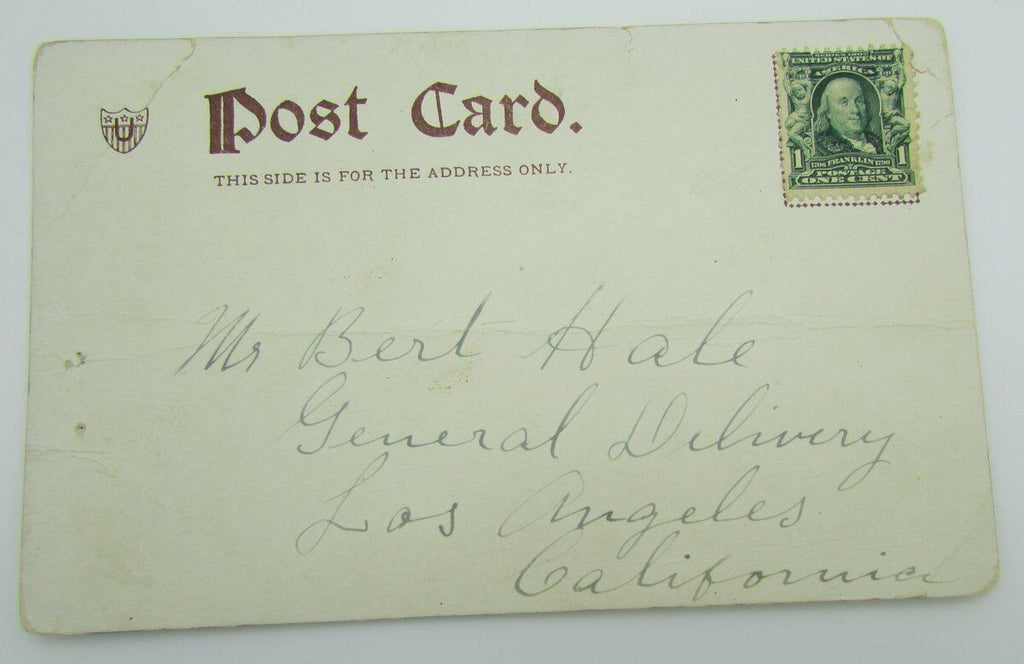 U
Post Card.
THIS SIDE IS FOR THE ADDRESS ONLY.
SERIES 1902
UNITED STATES OF
AMERICA
1 1
1706 FRANKLIN 1790
POSTAGE
ONE CENT
Mr Bert Hale
General Delivery
Los Angeles
California